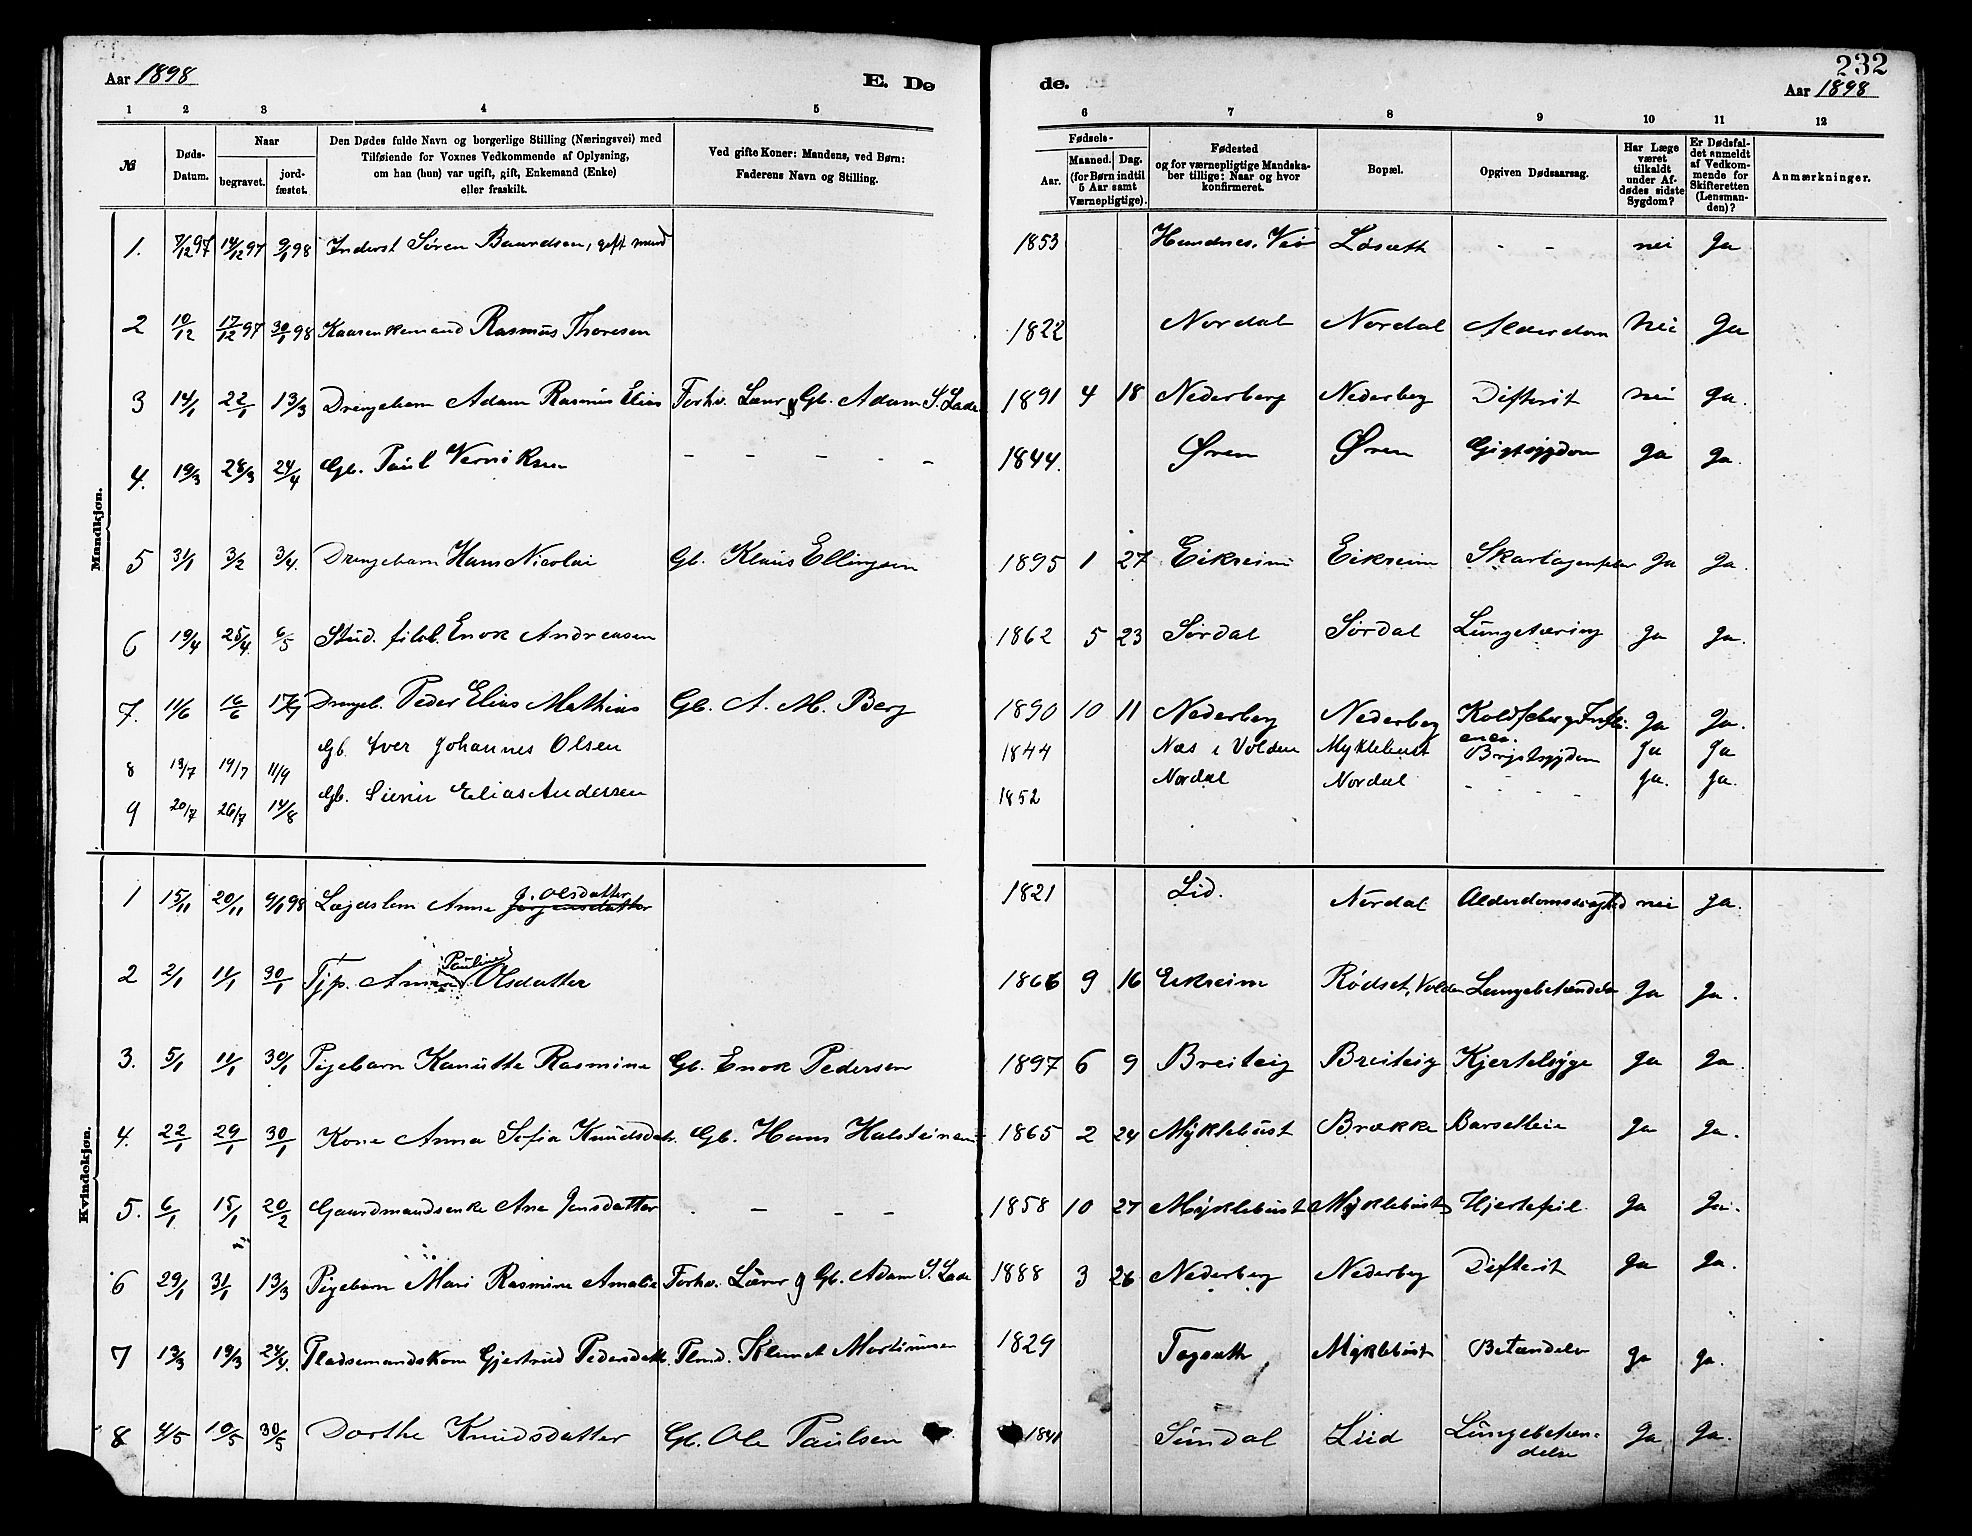 232
Aar 1898 E. Dø
de. Aar 1898
1 2 3 4 5
6 7 8 9 10 11 12
№ Døds-Datum. Naar begravet. jord-fæstet. Den Dødes fulde Navn og borgerlige Stilling (Næringsvei) med Tilføiende for Voxnes Vedkommende af Oplysning, om han (hun) var ugift, gift, Enkemand (Enke) eller fraskilt. Ved gifte Koner: Mandens, ved Børn: Faderens Navn og Stilling.
Fødsels- Aar. Maaned. Dag. (for Børn indtil 5 Aar samt Værnepligtige). Fødested og for værnepligtige Mandska-ber tillige: Naar og hvor konfirmeret. Bopæl. Opgiven Dødsaarsag. Har Læge været tilkaldt under Af-dødes sidste Sygdom? Er Dødsfal-det anmeldt af Vedkom-mende for Skifteretten (Lensman-den)? Anmærkninger.
Mandkjøn.
1. 7/12 97 14/12 97 9/1 98 Inderst Søren Baardsen, gift mand 1853 Løsæth - - nei Ja
2 10/12 17/12 97 30/1 98 Kaarenkemand Rasmus Thoresen 1822 Nordal Nordal Alderdom Nei Ja
3 14/1 22/1 13/3 Drengebarn Adam Rasmus Elias Forhv. Lærer g Gb. Adam S. Lade 1891 4 18 Nederberg Nederberg Difterit nei Ja.
4. 19/3 28/3 24/4 Gb. Paul - - - - - 1844. Øren Øren Gigtsygdom Ja Ja.
5 31/1 3/2 3/4. Drengebarn Hans Nicolai Gb. Klaus Ellingsen 1895 1 27 Eikreim Eikreim Ja Ja.
6 19/4 25/4. 6/5 Stud. filol. Enok Andreasen 1862 5 23 Sørdal Sørdal Lungetæring Ja Ja.
7. 11/6 16/6 17/7 Drengeb. Peder Elias Mathias Gb. A. M. Berg 1890 10 11 Nederberg Nederberg Ja Ja.
8 13/7 19/7 11/9 Gb. Iver Johannes Olsen 1844 Næs i Volden Myklebust Brystsygdom Ja Ja
9 20/7 26/7 14/8 Gb. Elias Andersen 1852 Nordal Nordal - - - - Ja. Ja.
Kvindekjøn.
1 15/11 20/11 9/1 98 Lægdslem Anne J. Olsdatter 1821 Lid. Nordal Alderdomssvaghed nei Ja.
2 2/1 11/1 30/1 Tjp. Anne Pauline Olsdatter 1866 9 16 Eikreim Rødset, Volden Lungebetændelse Ja Ja.
3. 5/1 11/1 30/1 Pigebarn Kanutte Rasmine Gb. Enok Pedersen 1897 6 9 Breiteig Breiteig Kjertelsyge Ja Ja.
4. 22/1 29/1 30/1 Kone Anna Sofia Knudsdatr. Gb. Hans Halsteinsen 1865 2 24 Myklebust Brække Barselleie Ja Ja.
5. 6/1 15/1 20/2 Gaardmandsenke Ane Jensdatter - - - - 1858 10 27 Myklebust Myklebust Hjertefeil. Ja Ja.
6 29/1 31/1 13/3 Pigebarn Mari Rasmine Amalie Forhv. Lærer g Gb. Adam S. Lade 1888 3 26 Nederberg Nederberg Difterit Ja Ja.
7 13/3 19/3 24/4. Pladsemandskone Gjertrud Pedersdatt. Plmd. Klemet Mortinusen 1829 Myklebust Betændelse Ja Ja.
8 4/5 10/5 30/5 Dorthe Knudsdatter Gb. Ole Paulsen 1841 Sundal Liid Lungebetæn-
delse Ja Ja.